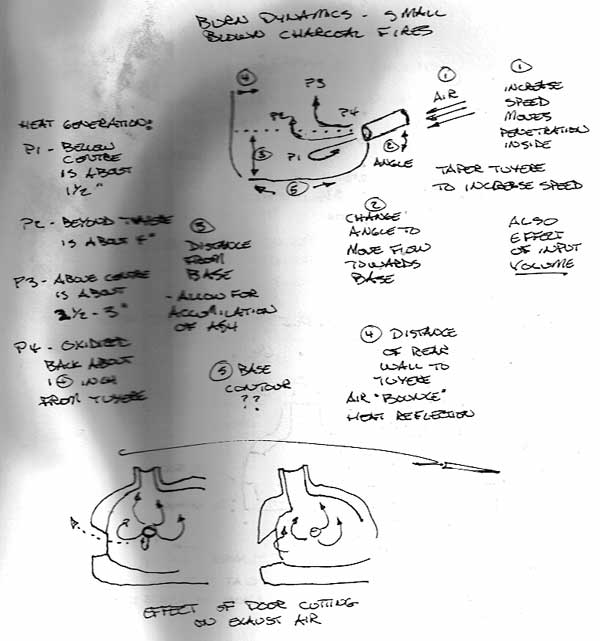 BURN DYNAMICS - SMALL
BLOWN CHARCOAL FIRES
④
P3
P2
P4
P1
③
⑤
②
ANGLE
①
AIR
①
INCREASE
SPEED
MOVES
PENETRATION
INSIDE
TAPER TUYERE
TO INCREASE SPEED
HEAT GENERATION:
P1 - BELOW
CENTRE
IS ABOUT
1 1/2"
P2 - BEYOND TUYERE
IS ABOUT 4"
P3 - ABOVE CENTRE
IS ABOUT
2 1/2 - 3"
P4 - OXIDIZED
BACK ABOUT
1 + INCH
FROM TUYERE
③
DISTANCE
FROM
BASE
- ALLOW FOR
ACCUMILATION
OF ASH
②
CHANGE
ANGLE TO
MOVE FLOW
TOWARDS
BASE
ALSO
EFFECT
OF INPUT
VOLUME
④ DISTANCE
OF REAR
WALL TO
TUYERE
AIR "BOUNCE"
HEAT REFLECTION
⑤ BASE
CONTOUR
??
EFFECT OF DOOR CUTTING
ON EXHAUST AIR